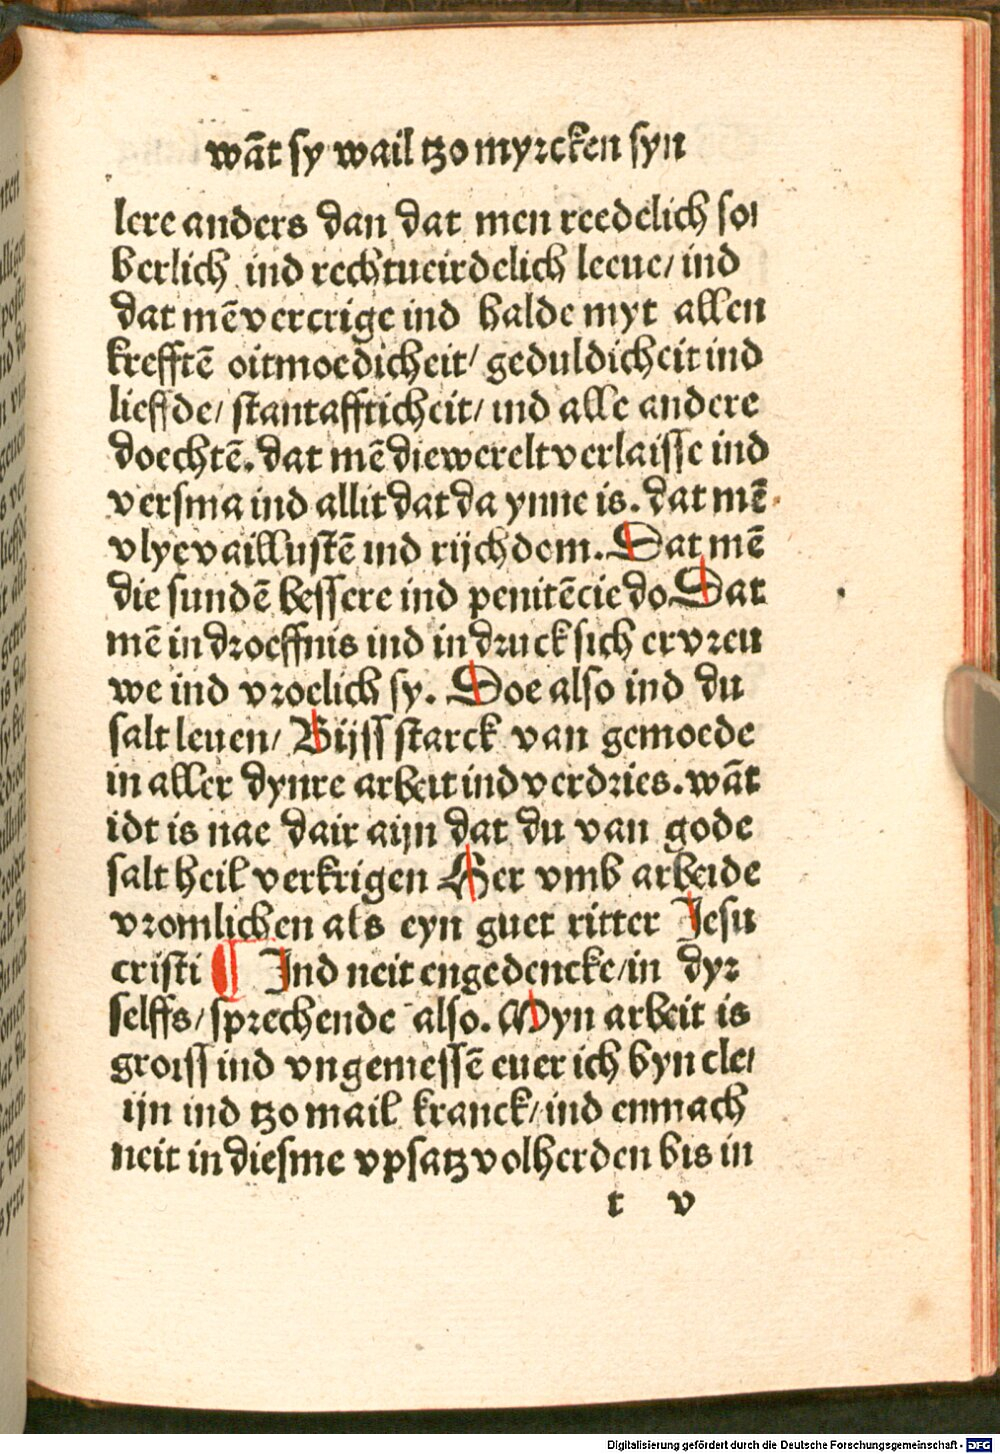 wãt sy wail tzo myrcken syn
lere anders dan dat men reedelich so⸗
berlich ind rechtueirdelich leeue/ ind
dat mẽ vercrige ind halde myt allen
krefftẽ oitmoedicheit/ geduldicheit ind
lieffde/ stantaffticheit/ ind alle andere
doechtẽ. dat mẽ die werelt verlaisse ind
versma ind allit dat da ynne is. dat mẽ
vlye vaillustẽ ind rijchdom. Dat mẽ
die sundẽ bessere ind penitẽcie do Dat
mẽ in droeffnis ind in druck sich ervreu
we ind vroelich sy. Doe also ind du
salt leuen/ Bijss starck van gemoede
in aller dynre arbeit ind verdries. wãt
idt is nae dair aijn dat du van gode
salt heil verkrigen Her vmb arbeide
vromlichen als eyn guet ritter Jesu
cristi ¶ Ind neit engedencke/ in dyr
selffs/ sprechende also. Myn arbeit is
groiss ind vngemessẽ euer ich byn cle⸗
ijn ind tzo mail kranck/ ind enmach
neit in diesme vpsatz volherden bis in
t v
Digitalisierung gefördert durch die Deutsche Forschungsgemeinschaft - DFG